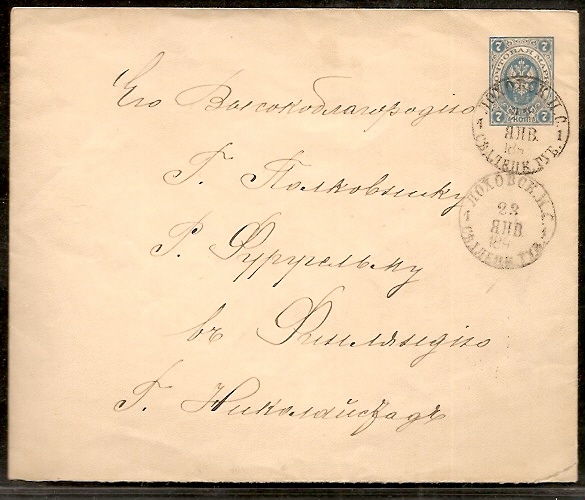 7 7
ПОЧТОВАЯ МАРКА
7 7
ЛОХОВСК. П. С.
1 ЯНВ. 1
СѢДЛЕЦК. ГУБ.
Его Высокоблагородію
Г. Полковнику
ЛОХОВСК. П. С.
23
1 ЯНВ 1
СѢДЛЕЦК. ГУБ.
Р. Фуругельму
въ Финляндію
Г. Николайстадъ